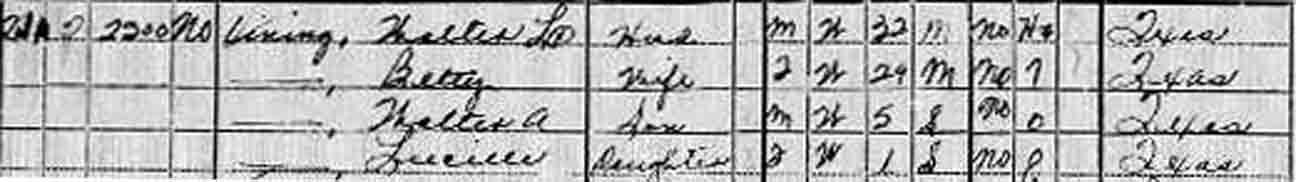 2200 No Vining, Walter Head M W 32 M No H4 Texas
——, Betty Wife F W 29 M No 7 Texas
——, Walter A Son M W 5 S No 0 Texas
——, Lucille Daughter F W 1 S No 0 Texas